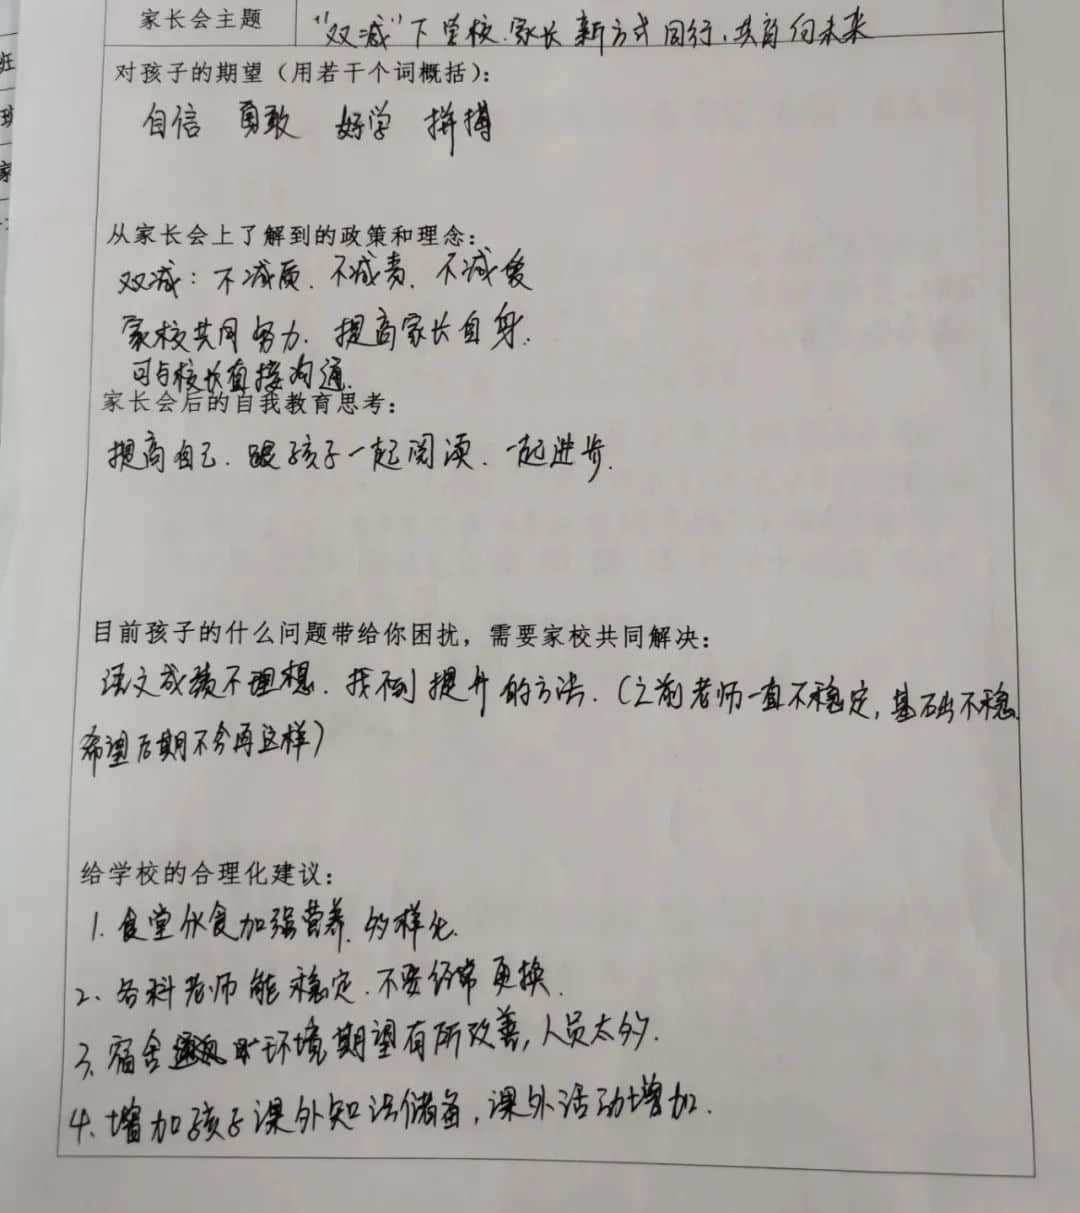 家长会主题
"双减"下学校、家长新方式同行,共育向未来
对孩子的期望（用若干个词概括）：
自信 勇敢 好学 拼搏
从家长会上了解到的政策和理念：
双减：不减质、不减责、不减爱
家校共同努力、提高家长自身.
可与校长直接沟通.
家长会后的自我教育思考：
提高自己、跟孩子一起阅读、一起进步.
目前孩子的什么问题带给你困扰，需要家校共同解决：
语文成绩不理想、找不到提升的方法.（之前老师一直不稳定,基础不稳,
希望后期不会再这样）
给学校的合理化建议：
1、食堂伙食加强营养、多样化.
2、各科老师能稳定、不要经常更换.
3、宿舍环境期望有所改善,人员太多.
4、增加孩子课外知识储备,课外活动增加.